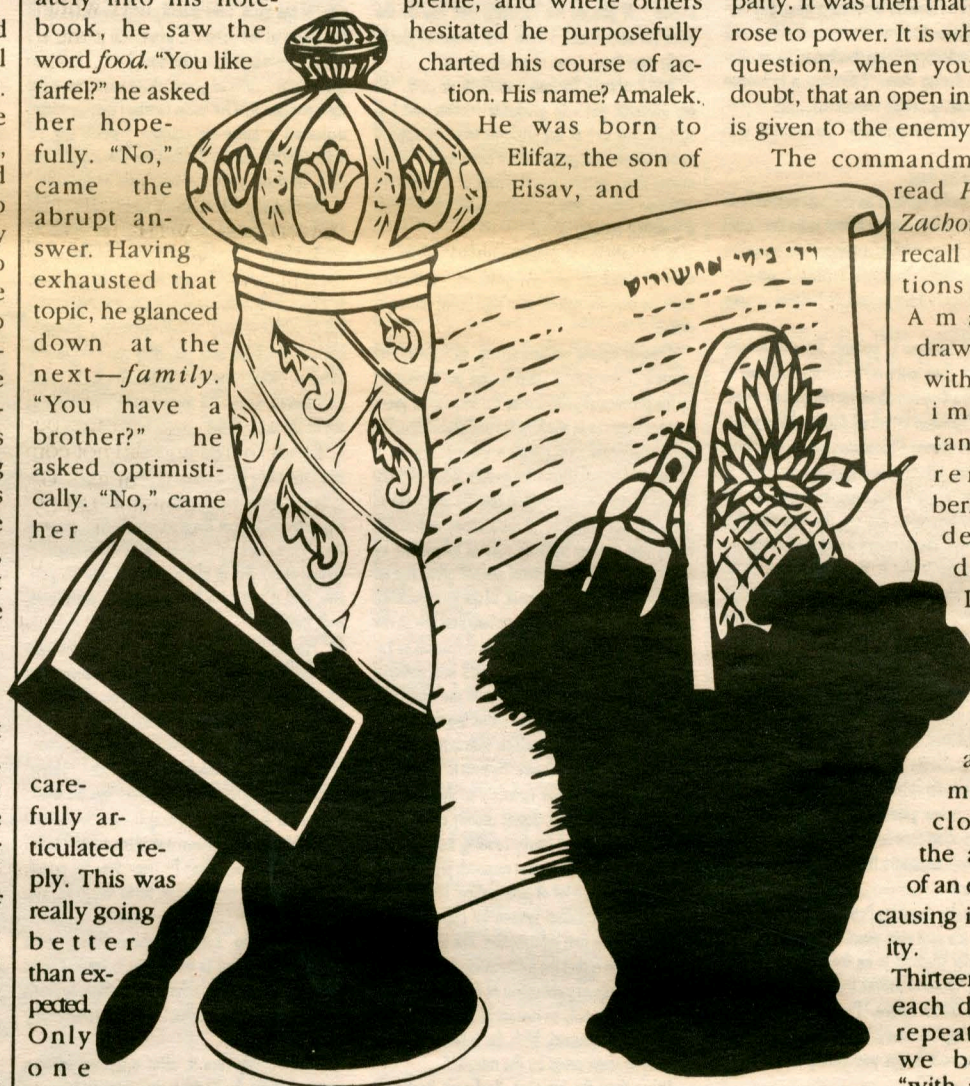 ately into his note-
book, he saw the
word food. "You like
farfel?" he asked
her hope-
fully. "No,"
came the
abrupt an-
swer. Having
exhausted that
topic, he glanced
down at the
next—family.
"You have a
brother?" he
asked optimisti-
cally. "No," came
her
care-
fully ar-
ticulated re-
ply. This was
really going
better
than ex-
pected.
Only
one
preme, and where others
hesitated he purposefully
charted his course of ac-
tion. His name? Amalek.
He was born to
Elifaz, the son of
Eisav, and
party. It was then that
rose to power. It is wh
question, when you
doubt, that an open in
is given to the enemy
The commandm
read
Zacho
recall
tions
Am
draw
with
im
tan
re
ber
de
d
a
m
clo
the a
of an
causing i
ity.
Thirteen
each d
repeat
we b
"with